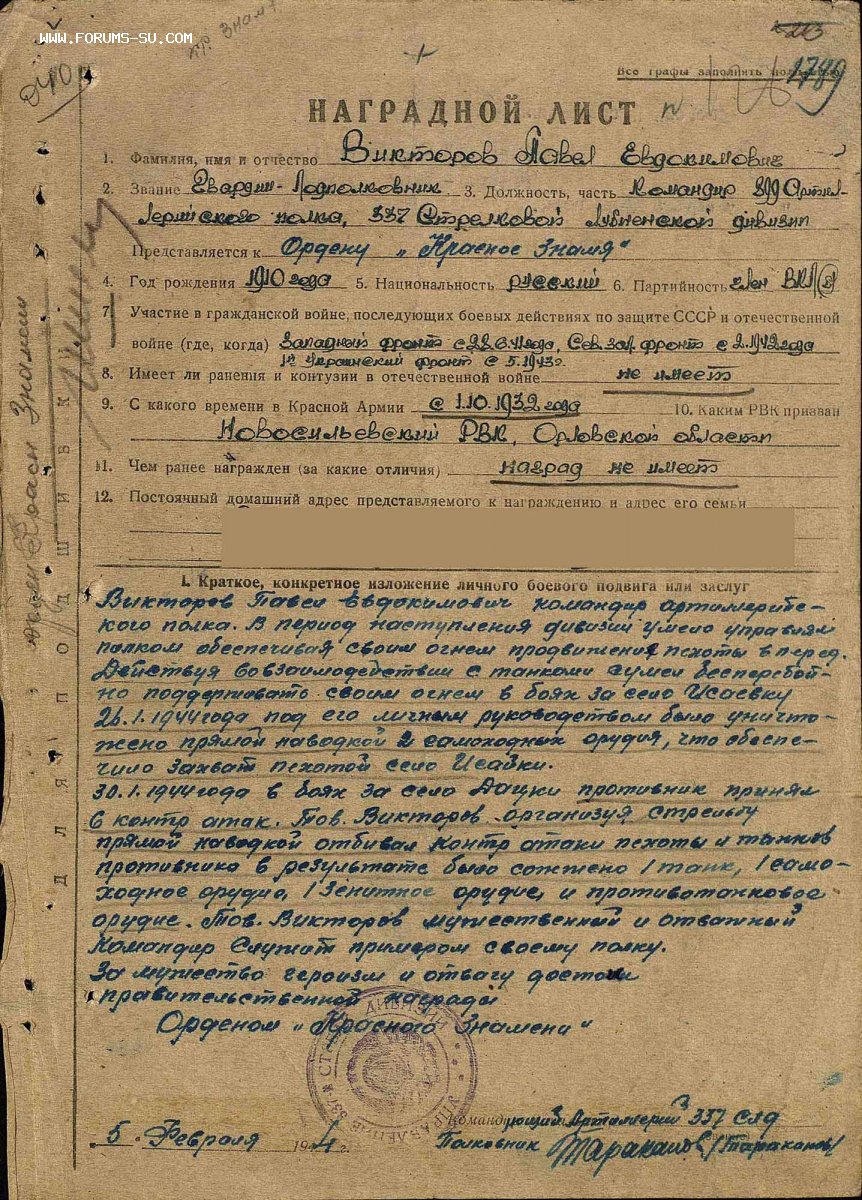 www.forums-su.com
пр. Знам
940
Все графы заполнять полностью
1789
НАГРАДНОЙ ЛИСТ
1. Фамилия, имя и отчество Викторов Павел Евдокимович
2. Звание Гвардии-Подполковник 3. Должность, часть Командир 899 Артил-
лерийского полка, 337 Стрелковой Лубненской дивизии
Представляется к Ордену „Красное Знамя"
4. Год рождения 1910 года 5. Национальность русский 6. Партийность член ВКП(б)
7. Участие в гражданской войне, последующих боевых действиях по защите СССР и отечественной
войне (где, когда) Западный фронт с 22.6.41 года, Сев. зап. фронт с 2.1942 года
1й Украинский фронт с 5.1943г.
8. Имеет ли ранения и контузии в отечественной войне не имеет
9. С какого времени в Красной Армии с 1.10.1932 года 10. Каким РВК призван
Новосильевский РВК, Орловской области
11. Чем ранее награжден (за какие отличия) наград не имеет
12. Постоянный домашний адрес представляемого к награждению и адрес его семьи
I. Краткое, конкретное изложение личного боевого подвига или заслуг
Викторов Павел Евдокимович командир артиллерийс-
кого полка. В период наступления дивизии умело управлял
полком обеспечивая своим огнем продвижения пехоты вперед.
Действуя вовзаимодействии с танками сумел бесперебой-
но поддерживать своим огнем в боях за село Исаевку
26.1.1944 года под его личным руководством было уничто-
жено прямой наводкой 2 самоходных орудия, что обеспе-
чило захват пехотой село Исайки.
30.1.1944 года в боях за село Дацки противник принял
6 контр атак. Тов. Викторов организуя стрельбу
прямой наводкой отбивал контр атаки пехоты и танков
противника в результате было сожжено 1 танк, 1 само-
ходное орудие, 1 Зенитное орудие, и противотанковое
орудие. Тов. Викторов мужественный и отважный
Командир служит примером своему полку.
За мужество героизм и отвагу достоин
правительственной награды
Орденом „Красного Знамени"
5. Февраля 1944 г.
Командующий Артиллерией 337 СЛД
Полковник Тараканов /Тараканов/
ДЛЯ ПОДШИВКИ